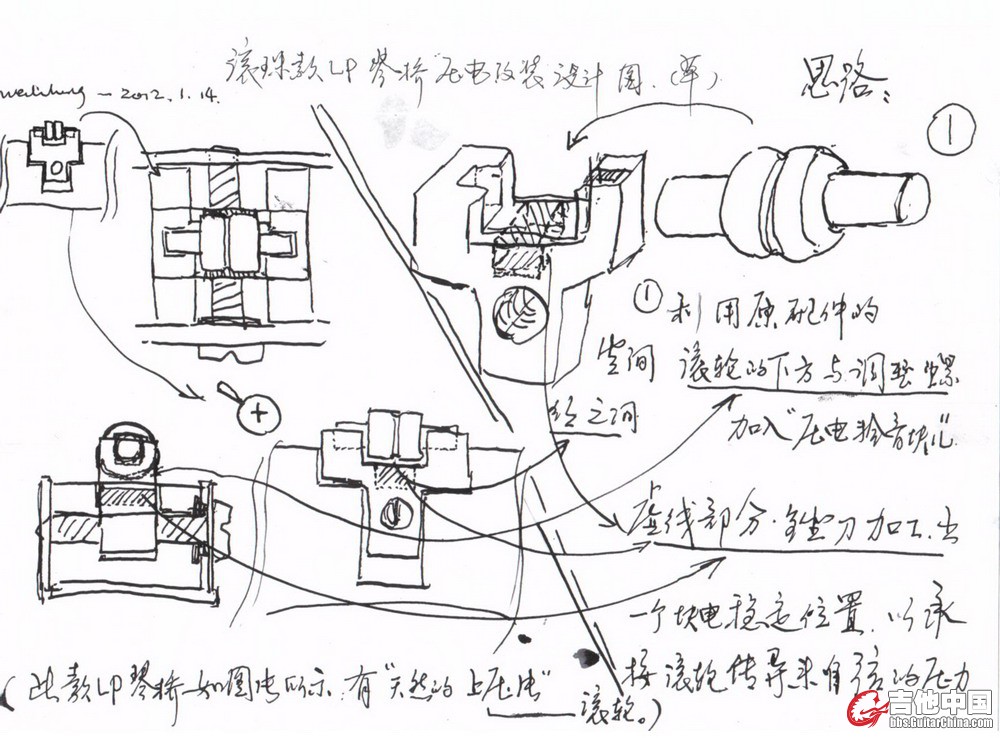 滚珠款LP琴桥"压电改装设计图.(草)
思路:
—2012.1.14.
①
①利用原配件的
空间 滚轮的下方与调整螺
丝之间
加入"压电拾音块儿"
虚线部分·锉刀加工出
一个块电稳定位置.以承
接滚轮传导来自弦的压力
(此款LP琴桥如图中所示.有"天然的上压块"
滚轮。)
吉他中国
bbs.GuitarChina.com